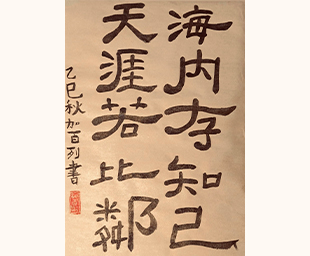 海内存知己
天涯若比鄰
乙巳秋加百列書